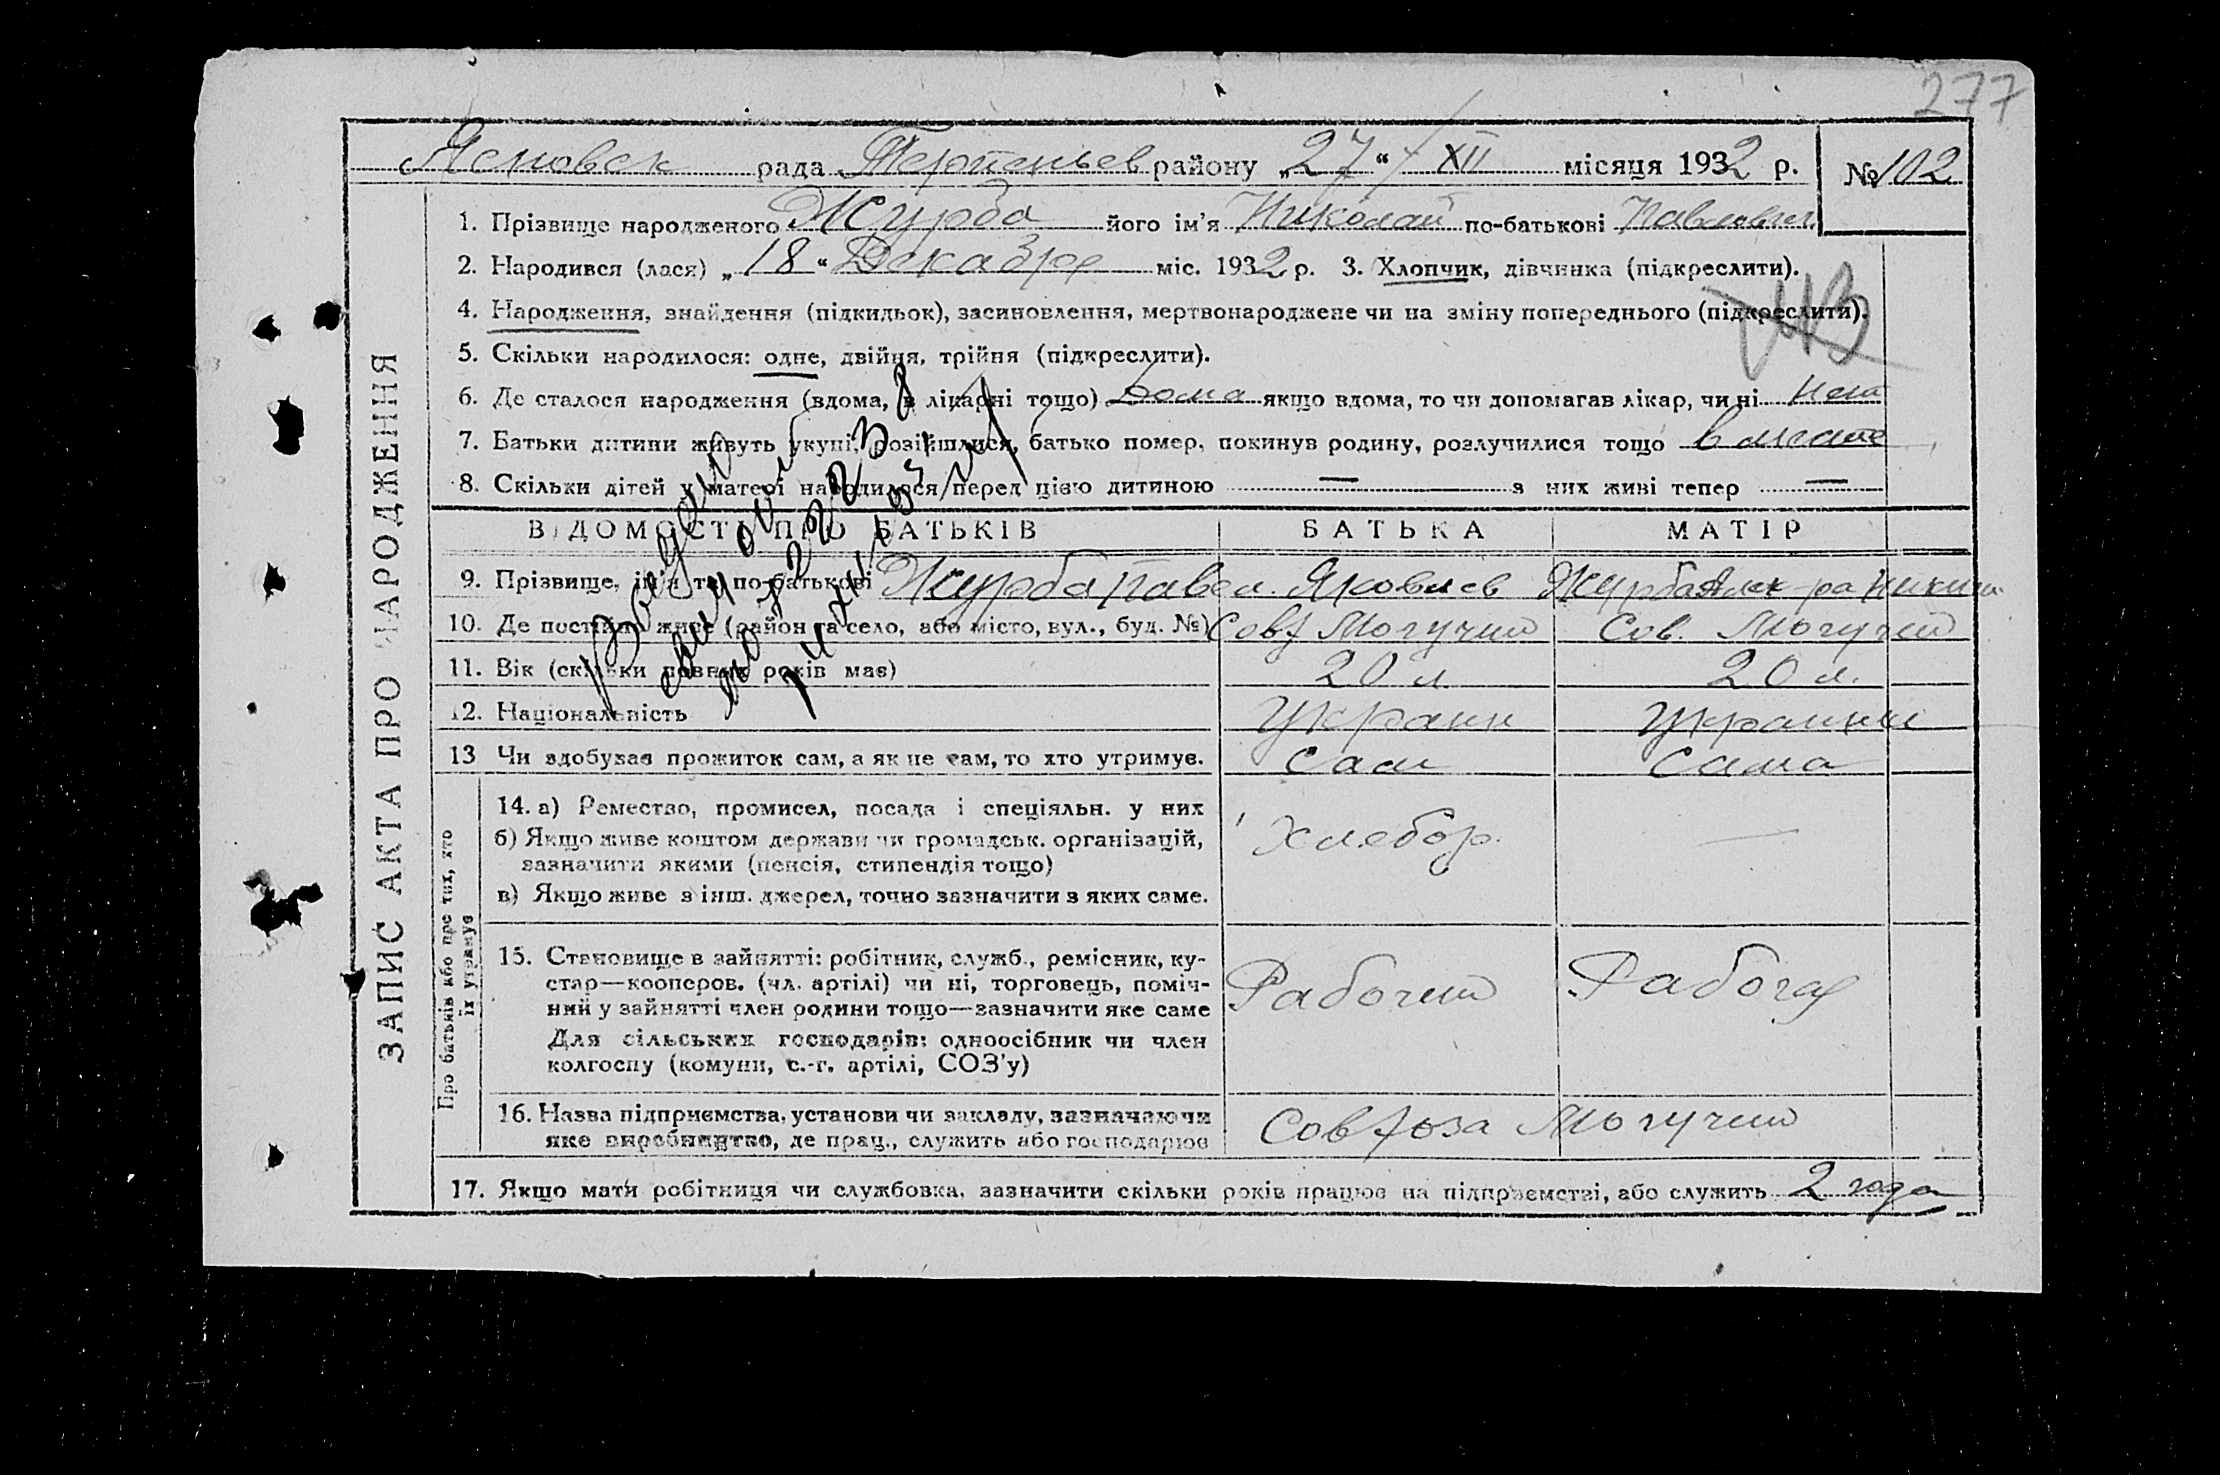 277
рада Терпеньев району „27“ XII місяця 1932 р. № 102
1. Прізвище народженого Журба його ім'я Николай по-батькові Павлович
2. Народився (лася) „18“ Декабря міс. 1932 р. 3. Хлопчик, дівчинка (підкреслити).
4. Народження, знайдення (підкидьок), засиновлення, мертвонароджене чи на зміну попереднього (підкреслити).
5. Скільки народилося: одне, двійня, трійня (підкреслити).
6. Де сталося народження (вдома, в лікарні тощо) Дома якщо вдома, то чи допомагав лікар, чи ні нет
7. Батьки дитини живуть укупі, розійшлися, батько помер, покинув родину, розлучилися тощо
8. Скільки дітей у матері народилося перед цією дитиною — з них живі тепер —
ЗАПИС АКТА ПРО НАРОДЖЕННЯ
ВІДОМОСТІ ПРО БАТЬКІВ БАТЬКА МАТІР
9. Прізвище, ім'я та по-батькові Журба Павел Яковлев Журба Алек-ра Никити
10. Де постійно живе (район та село, або місто, вул., буд. №) Совх Могучий Сов. Могучий
11. Вік (скільки повних років має) 20 л 20 л.
12. Національність Украин Украинка
13 Чи здобував прожиток сам, а як не сам, то хто утримує. Сам Сама
Про батьків або про тих, хто
їх утримує
14. а) Ремество, промисел, посада і спеціяльн. у них Хлебор. —
б) Якщо живе коштом держави чи громадськ. організацій,
зазначити якими (пенсія, стипендія тощо)
в) Якщо живе з інш. джерел, точно зазначити з яких саме.
15. Становище в зайнятті: робітник, служб., ремісник, ку-
стар—кооперов. (чл. артілі) чи ні, торговець, поміч-
ний у зайнятті член родини тощо—зазначити яке саме Рабочий
Для сільських господарів: одноосібник чи член
колгоспу (комуни, с.-г. артілі, СОЗ'у)
16. Назва підприємства, установи чи закладу, зазначаючи
яке виробництво, де прац., служить або господарює Совхоза Могучий
17. Якщо мати робітниця чи службовка, зазначити скільки років працює на підприємстві, або служить 2 года